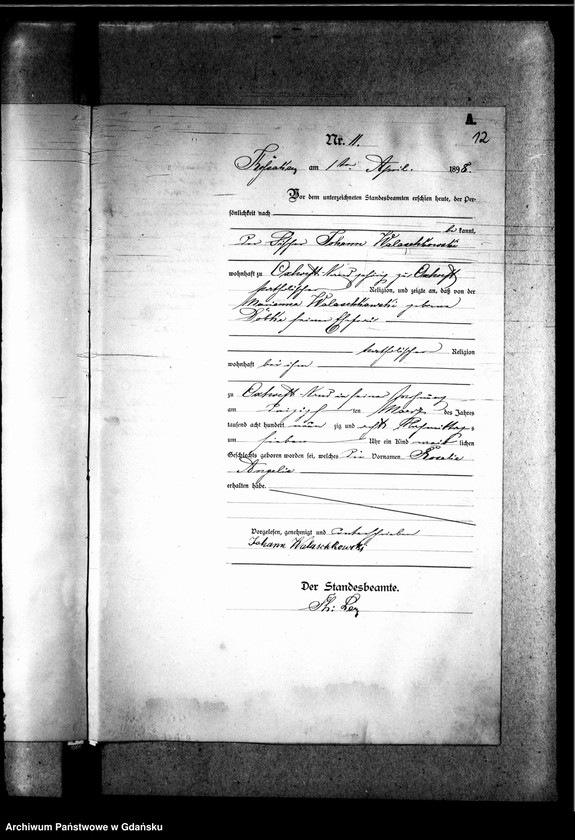 A.
12
Nr. 11.
am 1ten April. 1898.
Vor dem unterzeichneten Standesbeamten erschien heute, der Per-
sönlichkeit nach
be kannt,
Der Fischer Johann Walaschkowski
wohnhaft zu Oxhoeft
katholischer Religion, und zeigte an, daß von der
Marianna Walaschkowski geborene
seiner Ehefrau
katholischer Religion
wohnhaft bei ihm
zu Oxhoeft in seiner Wohnung
am dreißigsten März des Jahres
tausend acht hundert neun zig und acht Nachmittags
um sieben Uhr ein Kind weib lichen
Geschlechts geboren worden sei, welches die Vornamen Rosalie
Angelia
erhalten habe.
Vorgelesen, genehmigt und unterschrieben
Johann Walaschkowski
Der Standesbeamte.
Archiwum Państwowe w Gdańsku